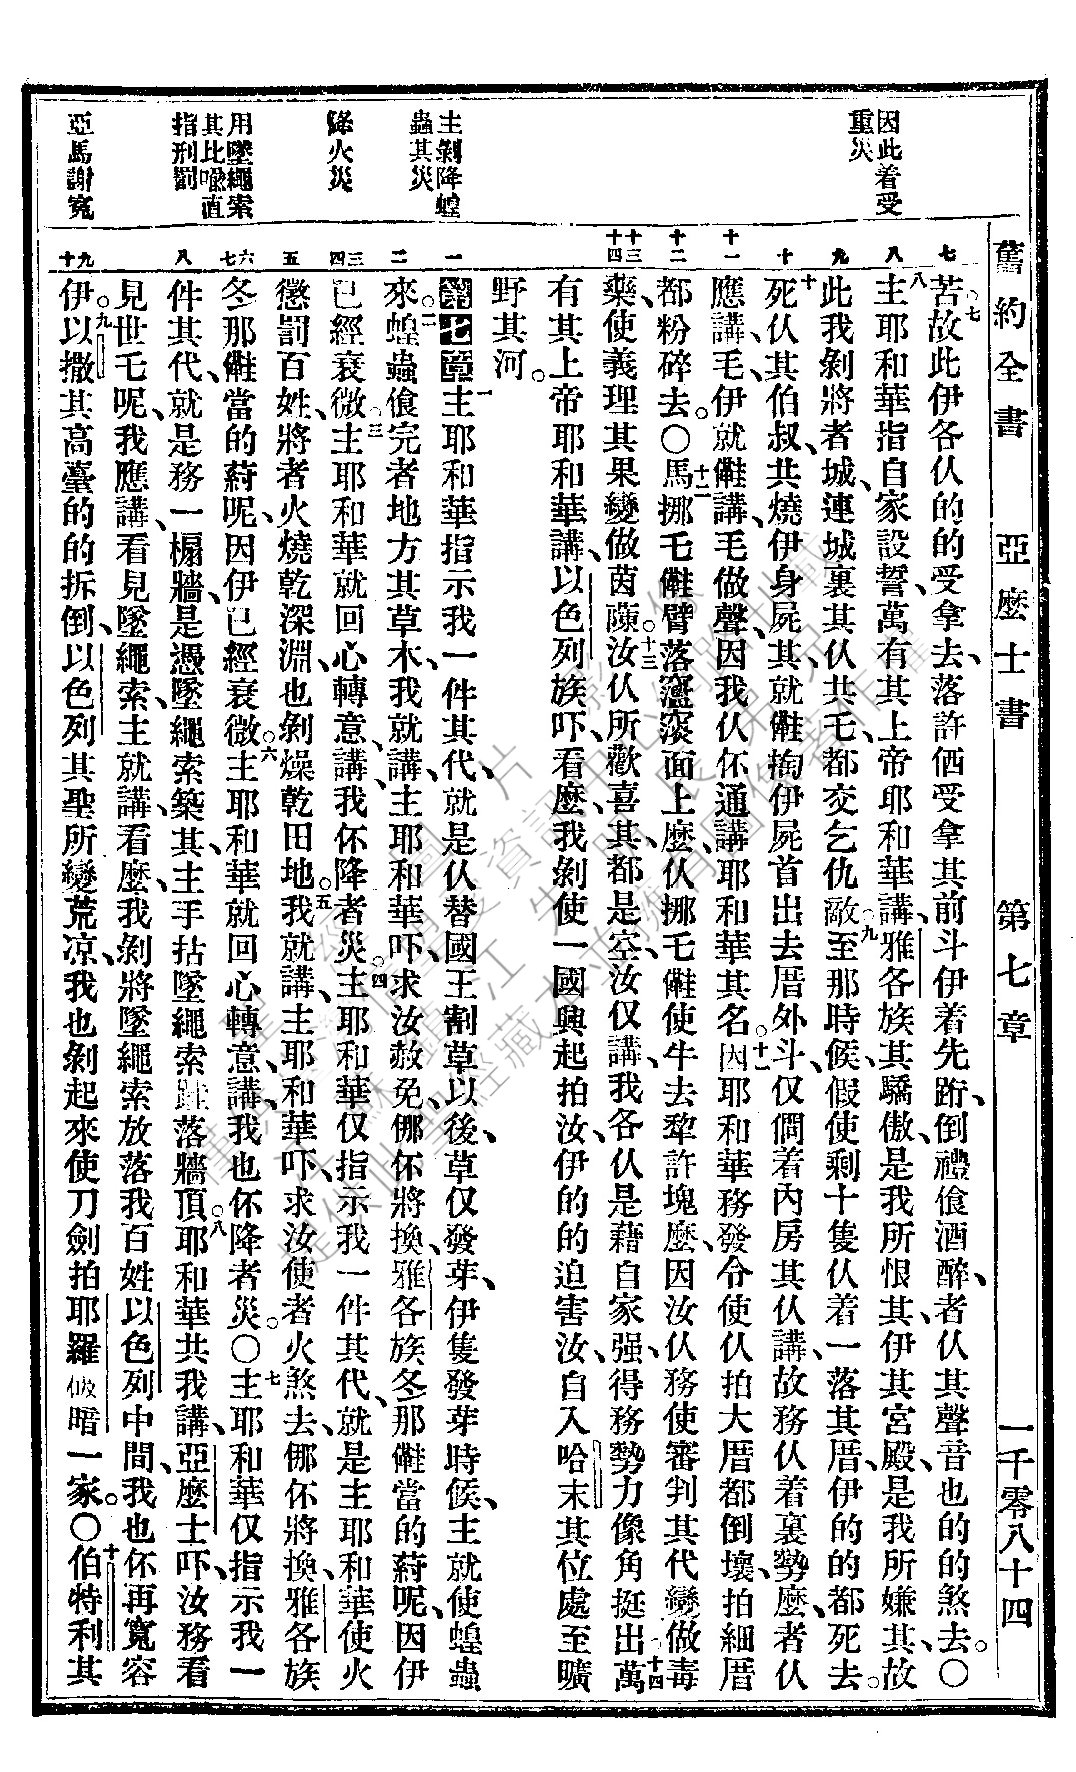 舊約全書 亞麽士書 第七章 一千零八十四
因此着受
重災
主剝降蝗
蟲其災
降火災
用墜繩索
其比喻直
指刑罰
亞馬謝寃
七 八 九 十 十一 十二 十三 十四 一 二 三 四 五 六 七 八 九 十
苦。七故此伊各仈的的受拿去、落許俹受拿其前斗、伊着先跪倒禮飡酒醉、者仈其聲音也的的煞去。〇
八主耶和華指自家設誓、萬有其上帝耶和華講、雅各族其驕傲是我所恨其、伊其宮殿是我所嫌其、故
此我剝將者城、連城裏其仈共毛、都交乞仇敵。九至那時候、假使剩十隻仈着一落其厝、伊的的都死去。
十死仈其伯叔、共燒伊身屍其、就掏伊屍首出去厝外斗、仅倜着內房其仈講、故務仈着裏勢麽、者仈
應講、毛、伊就講、毛做聲、因我仈伓通講耶和華其名。十一因耶和華務發令、使仈拍大厝都倒壞、拍細厝
都粉碎去。〇十二馬挪乇臂落滾面上麽、仈挪乇使牛去犂許塊麽、因汝仈務使審判其代變做毒
藥、使義理其果變做茵蔯。十三汝仈所歡喜其、都是空、汝仅講、我各仈是藉自家强、得務勢力像角挺出。十四萬
有其上帝耶和華講、以色列族吓、看麽、我剝使一國興起拍汝、伊的的迫害汝、自入哈末其位處至曠
野其河。
第七章 一主耶和華指示我一件其代、就是仈替國王割草以後、草仅發芽、伊隻發芽時候、主就使蝗蟲
來。二蝗蟲飡完者地方其草木、我就講、主耶和華吓、求汝赦免、㑚伓將換、雅各族冬那當的葤呢、因伊
已經衰微。三主耶和華就回心轉意講、我伓降者災。四主耶和華仅指示我一件其代、就是主耶和華使火
懲罰百姓、將者火、燒乾深淵、也剝燥乾田地。五我就講、主耶和華吓、求汝使者火煞去、㑚伓將換、雅各族
冬那當的葤呢、因伊已經衰微。六主耶和華就回心轉意講、我也伓降者災。〇七主耶和華仅指示我一
件其代、就是務一榻牆、是憑墜繩索築其、主手拈墜繩索落牆頂。八耶和華共我講、亞麽士吓、汝務看
見世乇呢、我應講、看見墜繩索、主就講、看麽、我剝將墜繩索放落我百姓以色列中間、我也伓再寬容
伊。九以撒其高臺的的拆倒、以色列其聖所變荒凉、我也剝起來使刀劍拍耶羅暗一家。〇十伯特利其